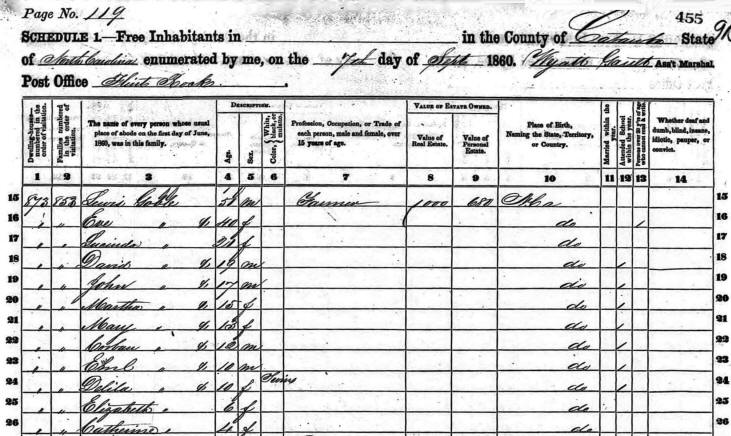 Page No. 119
455
SCHEDULE 1.—Free Inhabitants in in the County of Catawba State
of North Carolina enumerated by me, on the 7th day of Sept 1860. Wyatt Ass't Marshal.
Post Office Rocks.
Dwelling-houses—numbered in the order of visitation.
Families numbered in the order of visitation.
The name of every person whose usual place of abode on the first day of June, 1860, was in this family.
DESCRIPTION.
Age.
Sex.
Color, White, black, or mulatto.
Profession, Occupation, or Trade of each person, male and female, over 15 years of age.
VALUE OF ESTATE OWNED.
Value of Real Estate.
Value of Personal Estate.
Place of Birth, Naming the State, Territory, or Country.
Married within the year.
Attended School within the year.
Persons over 20 y'rs of age who cannot read & write.
Whether deaf and dumb, blind, insane, idiotic, pauper, or convict.
1 2 3 4 5 6 7 8 9 10 11 12 13 14
15 873 853 Lewis m Farmer 1000 680 N.Ca 15
16 " " Eve " 40 f do / 16
17 " " Lucinda " 21 f do 17
18 " " David " 19 m do / 18
19 " " John " 17 m do / 19
20 " " Martha " 15 f do / 20
21 " " Mary " 13 f do / 21
22 " " " 12 m do / 22
23 " " " 10 m do / 23
24 " " Delila " 10 f Twins do / 24
25 " " Elizabeth " 6 f do 25
26 " " Catherine " 4 f do 26